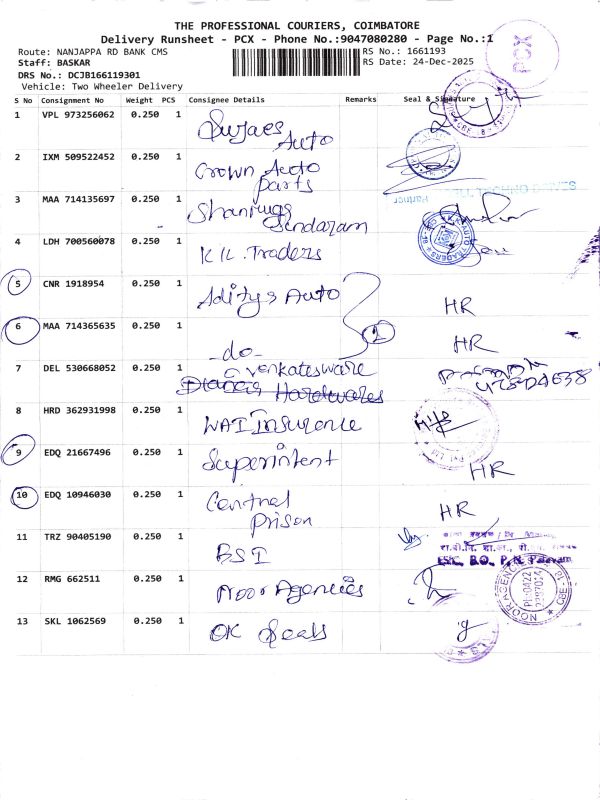 THE PROFESSIONAL COURIERS, COIMBATORE
Delivery Runsheet - PCX - Phone No.:9047080280 - Page No.:1
Route: NANJAPPA RD BANK CMS
RS No.: 1661193
Staff: BASKAR
RS Date: 24-Dec-2025
DRS No.: DCJB166119301
Vehicle: Two Wheeler Delivery
PCX
S No Consignment No Weight PCS Consignee Details Remarks Seal & Signature
1 VPL 973256062 0.250 1 Auto
2 IXM 509522452 0.250 1 Crown Auto
parts
3 MAA 714135697 0.250 1 Shanmuga
Sundaram
4 LDH 700560078 0.250 1 K K. Traders
5 CNR 1918954 0.250 1 Aditya Auto HR
6 MAA 714365635 0.250 1 -do- 2 HR
7 DEL 530668052 0.250 1 Venkateswara
Hardwares
8 HRD 362931998 0.250 1 WAT Insurence
9 EDQ 21667496 0.250 1 Superintent HR
10 EDQ 10946030 0.250 1 Central HR
prison
11 TRZ 90405190 0.250 1 BSI
ESIC, B.O., P.N. Palayam
12 RMG 662511 0.250 1 Noor Agencies
NOOR AGENCIES
13 SKL 1062569 0.250 1 OK Seals